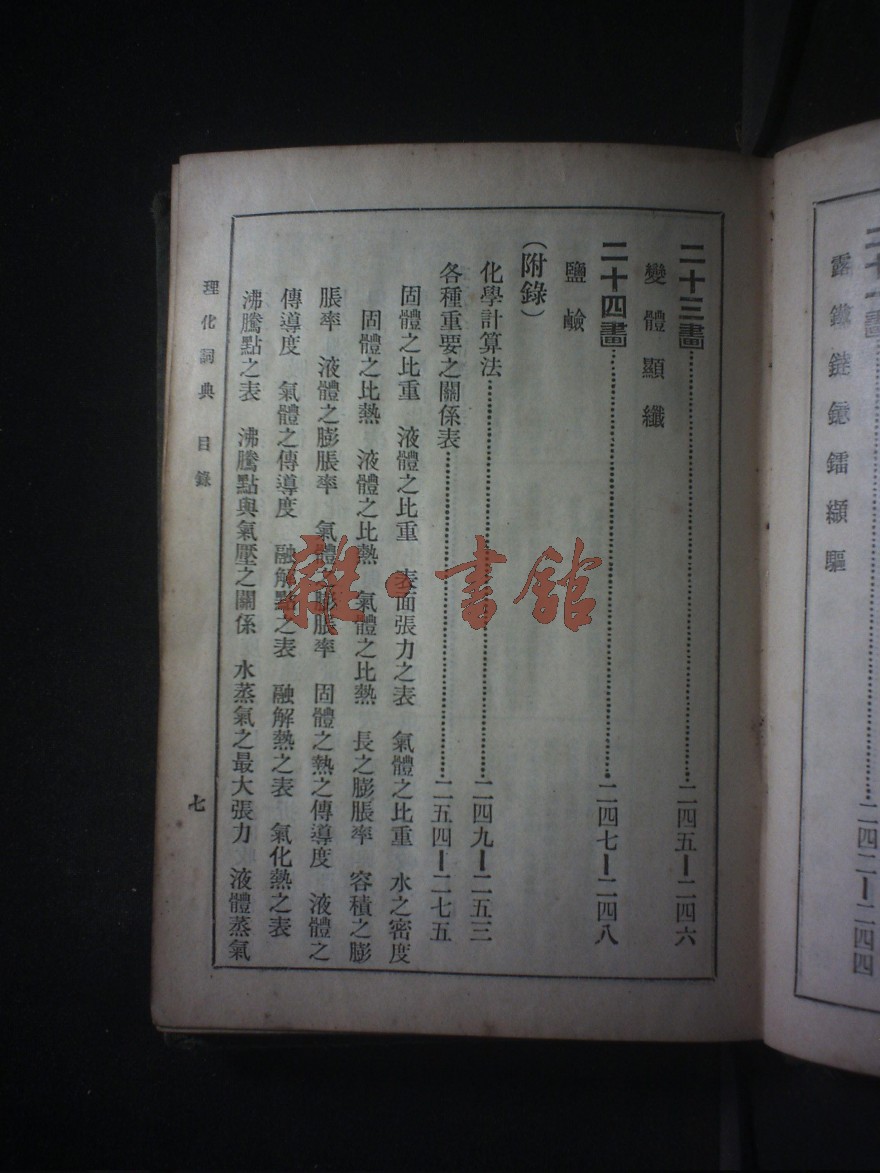 二十一畫……二四二—二四四
露鐵鏈鐿鐳纈驅
二十三畫……二四五—二四六
變體顯纖
二十四畫……二四七—二四八
鹽鹼
（附錄）
化學計算法……二四九—二五三
各種重要之關係表……二五四—二七五
固體之比重 液體之比重 表面張力之表 氣體之比重 水之密度
固體之比熱 液體之比熱 氣體之比熱 長之膨脹率 容積之膨
脹率 液體之膨脹率 氣體之膨脹率 固體之熱之傳導度 液體之
傳導度 氣體之傳導度 融解點之表 融解熱之表 氣化熱之表
沸騰點之表 沸騰點與氣壓之關係 水蒸氣之最大張力 液體蒸氣
理化詞典 目錄
七
雜·書館